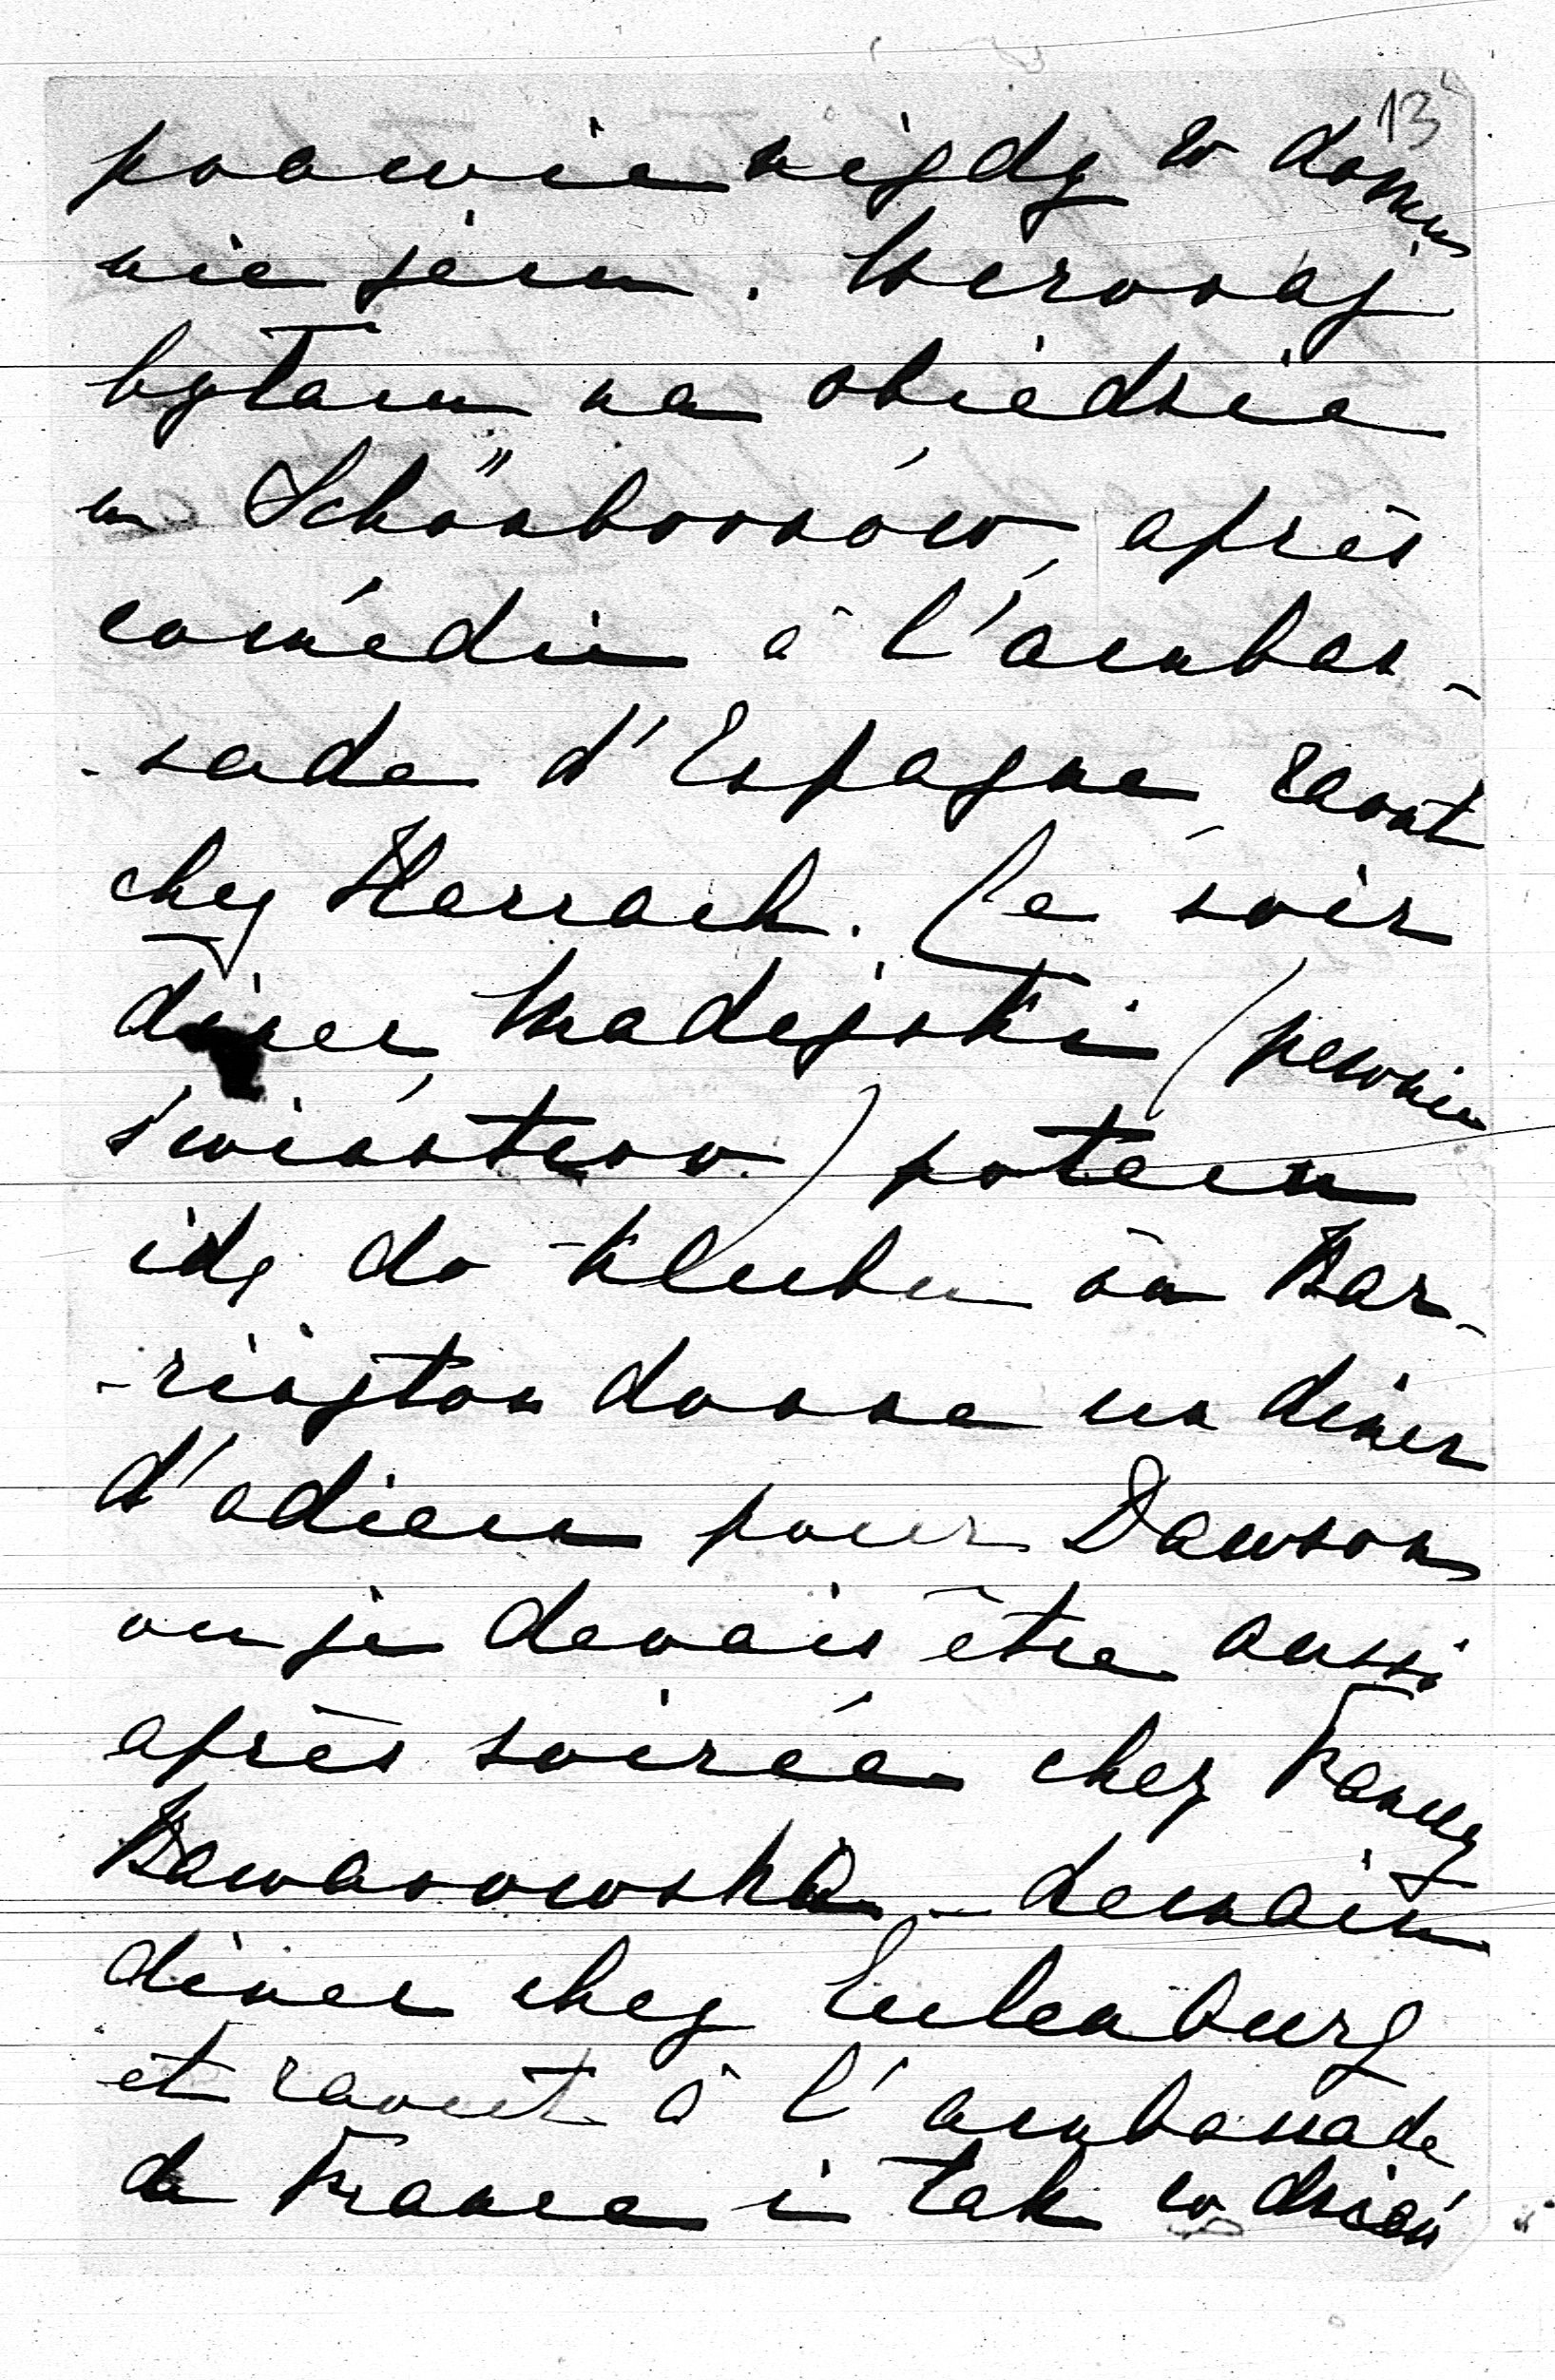 13
prawie nigdy w domu
nie jem. Wczoraj
byłam na obiedzie
u Schönbornów, après
comédie à l'ambas-
-sade d'Espagne, raout
chez Harrach. Ce soir
diner Madejski (pewnie
świństwo) potem
idę do klubu où Bar-
-rington donne un diner
d'adieu pour Dawson
ou je devais être aussi
après soirée chez Fanny
Baworowska - demain
diner chez Eulenburg
et raout à l'ambassade
de France i tak w dzień